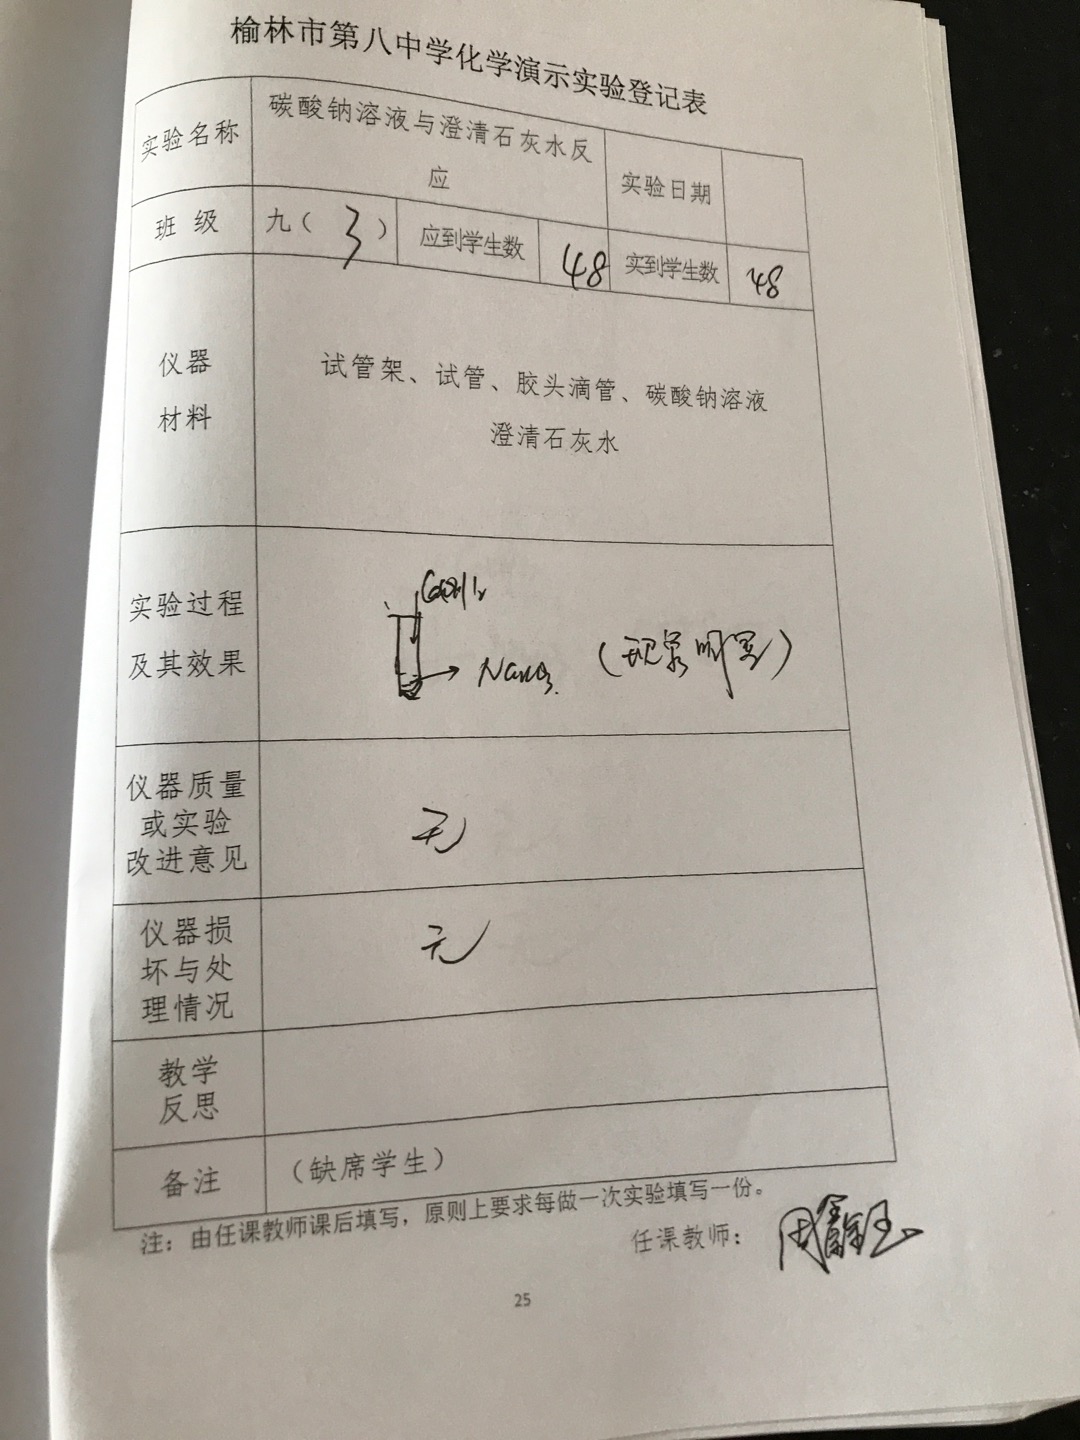 榆林市第八中学化学演示实验登记表
实验名称
碳酸钠溶液与澄清石灰水反
应
实验日期
班 级
九（ 3 ）
应到学生数
48
实到学生数
48
仪器
材料
试管架、试管、胶头滴管、碳酸钠溶液
澄清石灰水
实验过程
及其效果
（现象明显）
仪器质量
或实验
改进意见
无
仪器损
坏与处
理情况
无
教学
反思
备注
（缺席学生）
注：由任课教师课后填写，原则上要求每做一次实验填写一份。
任课教师：
25